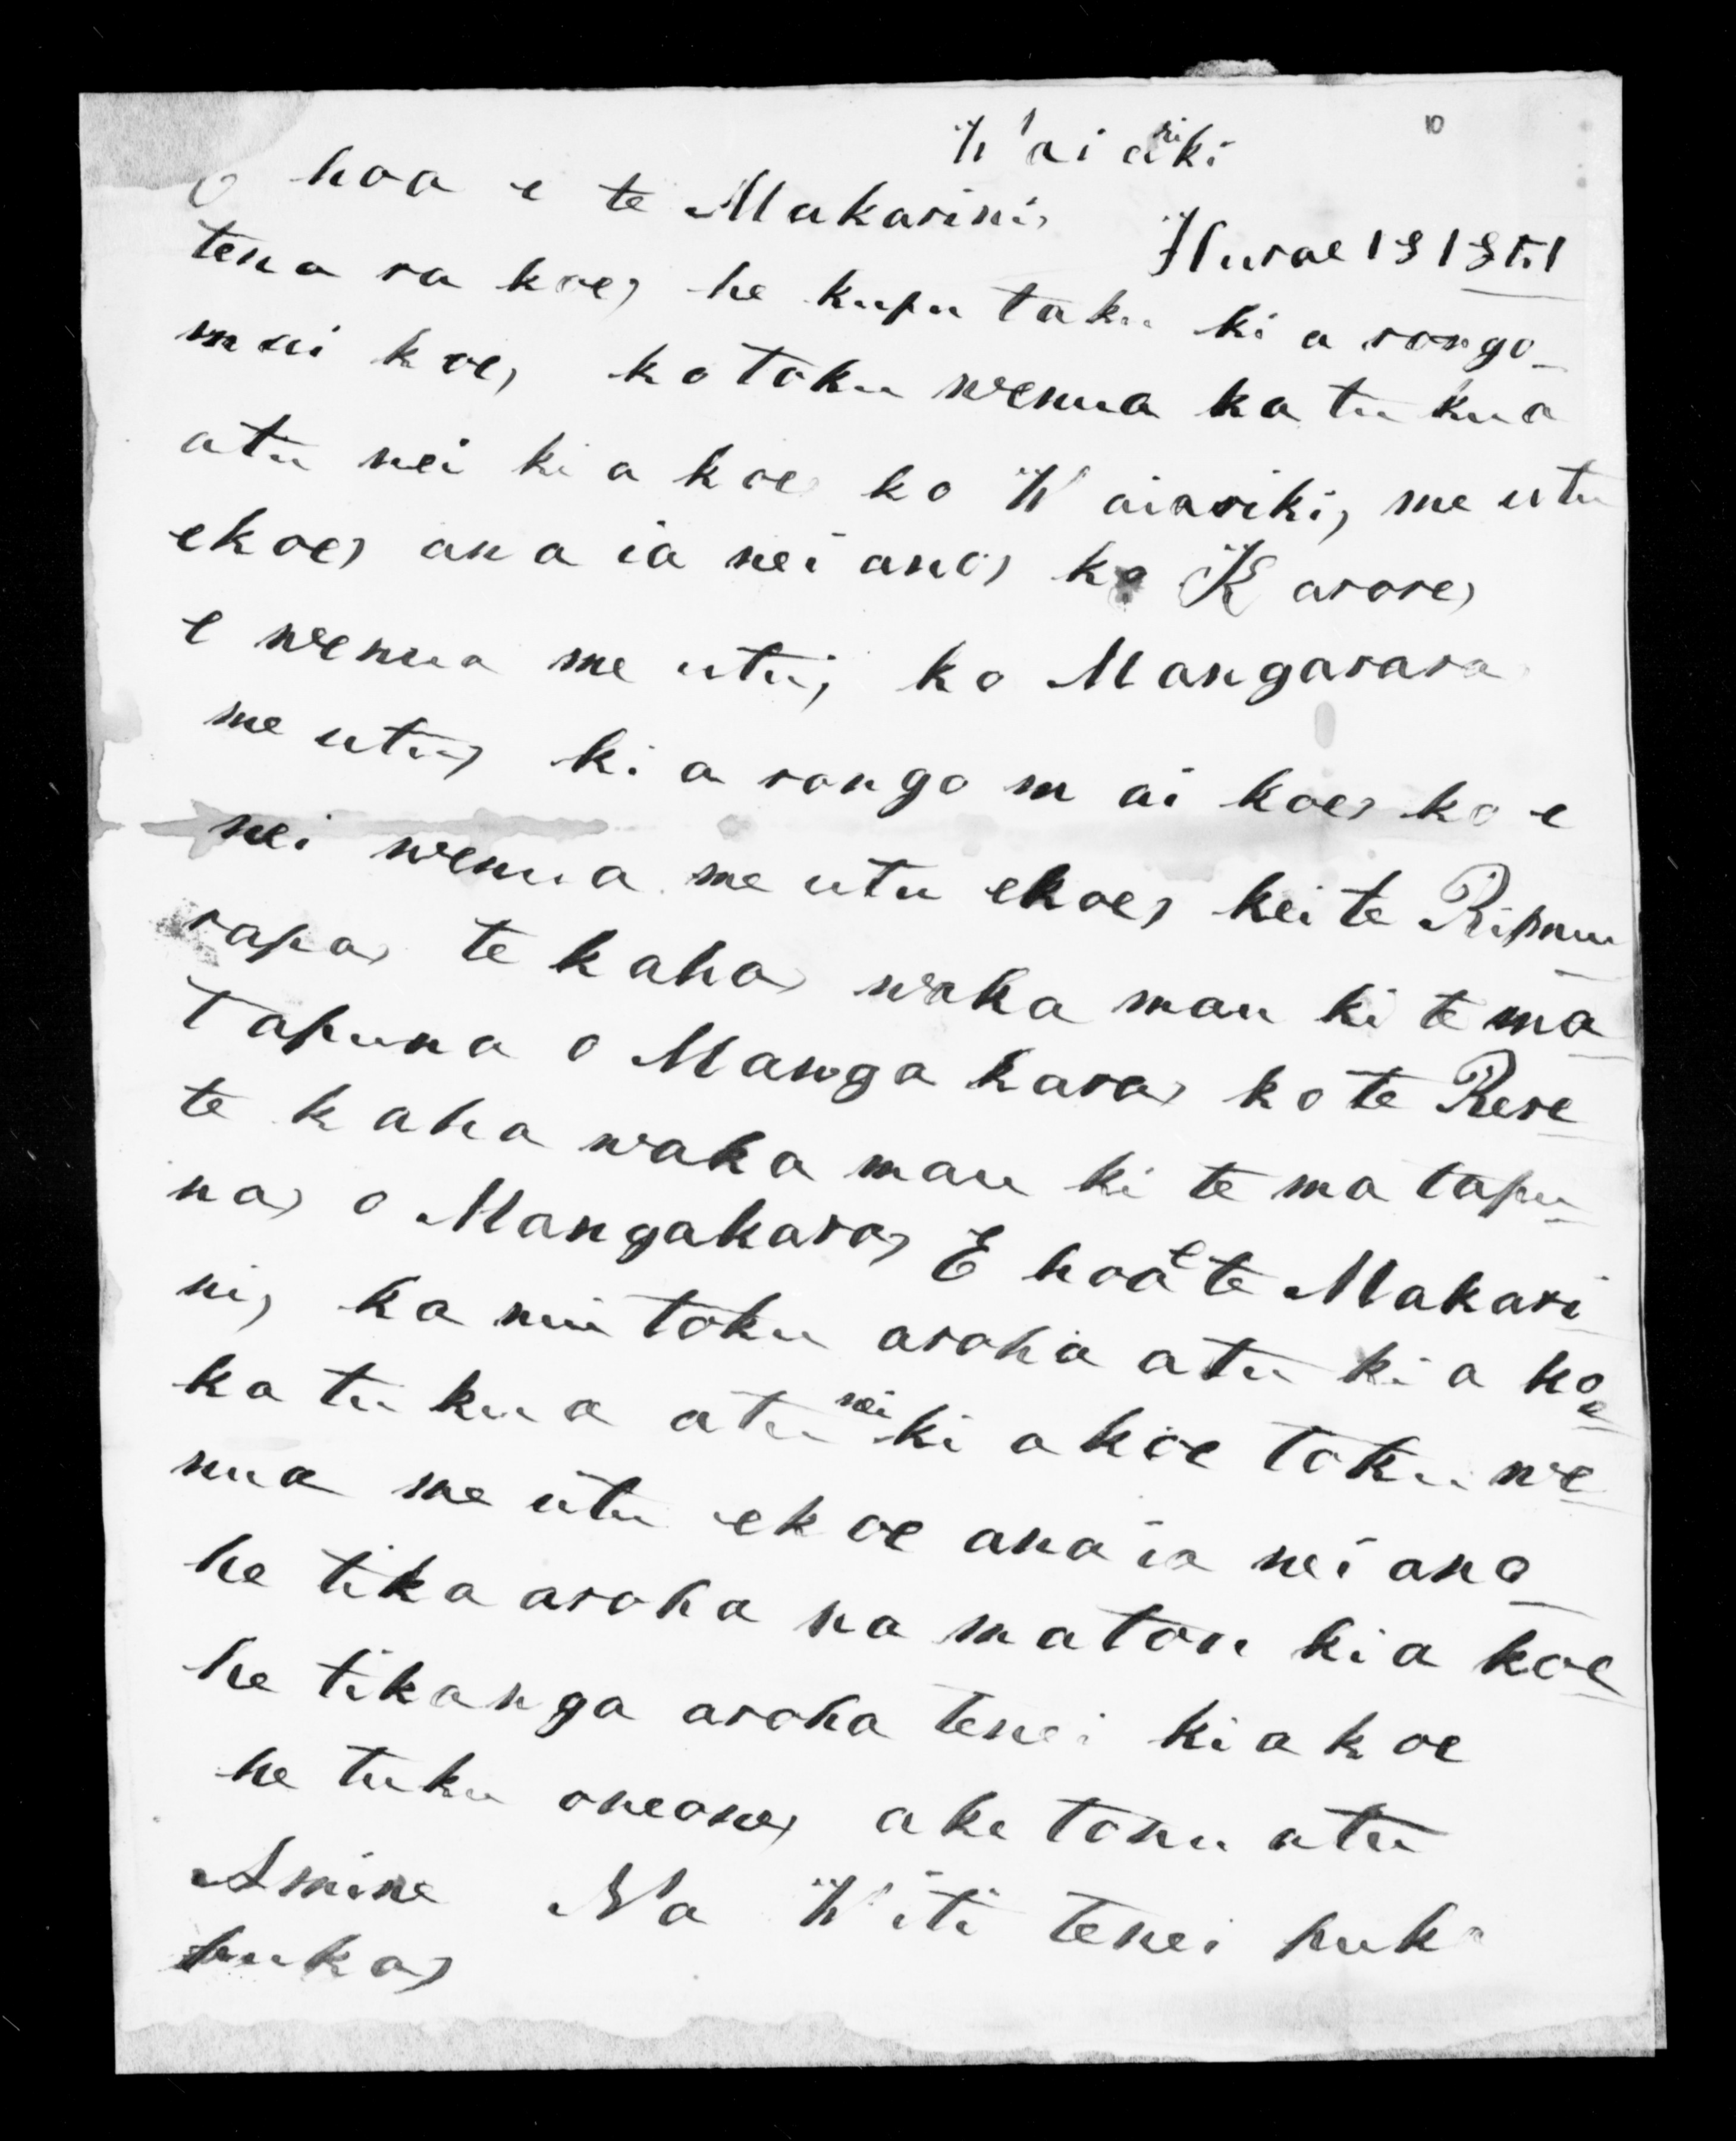 10
Waiariki
E hoa e te Makarini, Hurae 18 1851
tena ra koe, he kupu taku ki a rongo-
mai koe, ko toku wenua ka tukua
atu nei ki a koe ko Waiariki, me utu
ekoe, ana ia nei ano, ko Karore,
e wenua me utu, ko Mangarara
me utu, ki a rongo mai koe, ko e
nei wenua me utu ekoe, kei te
rapa, te kaha, waka mau ki te ma
tapuna o Mangakara, ko te Rere
te kaha waka mau ki te ma tapu-
na, o Mangakara, E hoa e te Makari
ni, ka nui toku aroha atu ki a koe
ka tukua atu nei ki a koe toku we
nua me utu ekoe ana ia nei ano
he tika aroha na matou kia koe
he tikanga aroha tenei kia koe
he tuku oneone, ake tonu atu
Amine Na Witi tenei puka
puka,